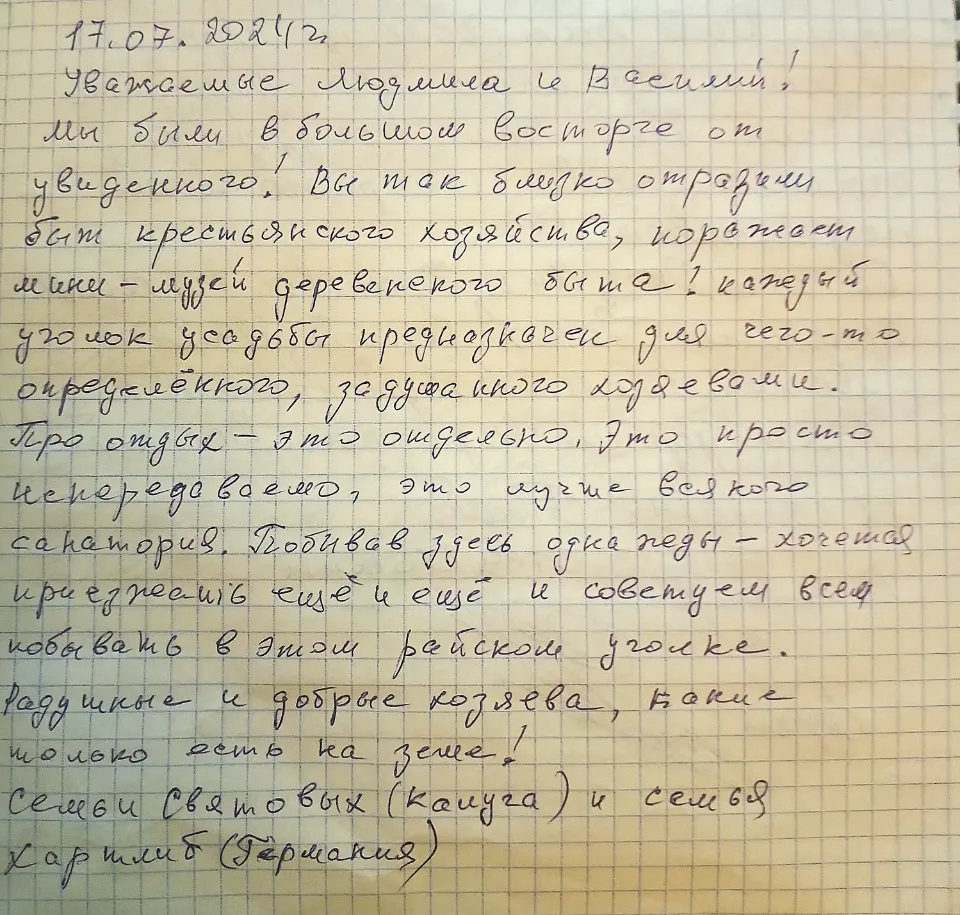 17.07.2024г.
Уважаемые Людмила и Василий!
Мы были в большом восторге от
увиденного! Вы так близко отразили
быт крестьянского хозяйства, поражает
мини-музей деревенского быта! каждый
уголок усадьбы предназначен для чего-то
определённого, задуманного хозяевами.
Про отдых - это отдельно. Это просто
непередаваемо, это лучше всякого
санатория. Побывав здесь однажды - хочется
приезжать ещё и ещё и советуем всем
побывать в этом райском уголке.
Радушные и добрые хозяева, какие
только есть на земле!
Семьи Святовых (Калуга) и семья
Хартлиб (Германия)